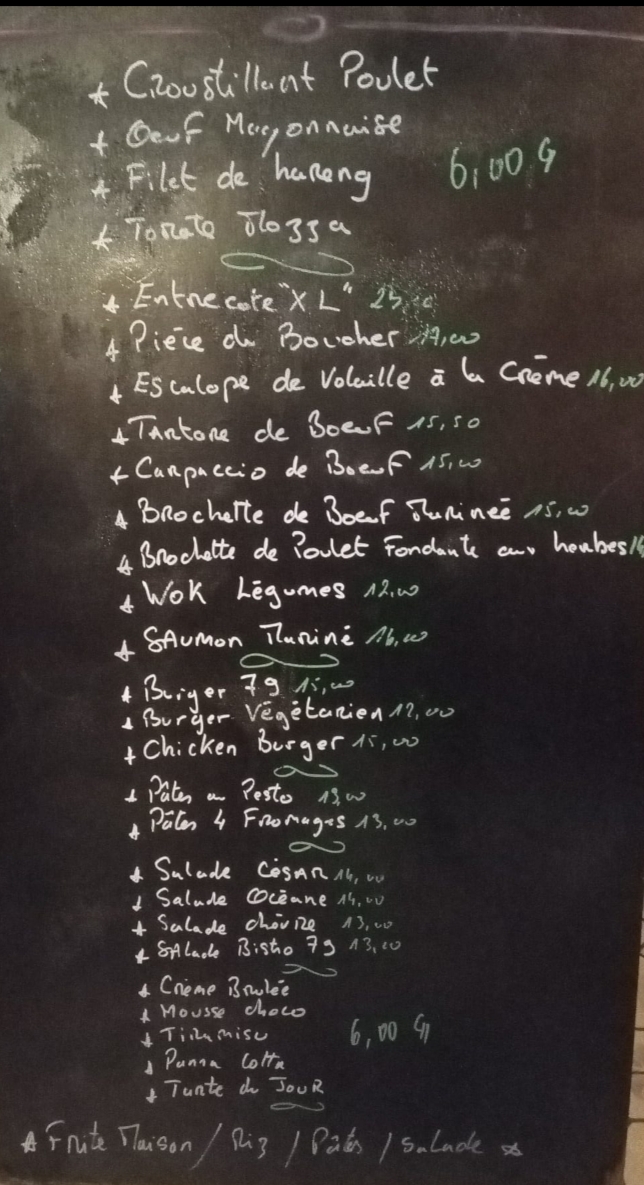 Croustillant Poulet
Oeuf Mayonnaise
Filet de hareng 6,00 €
Tomate Mozza
Entrecote "XL"
Pièce du Boucher 17,00
Escalope de Volaille à la Crème 16,00
Tartare de Boeuf 15,50
Carpaccio de Boeuf 15,00
Brochette de Boeuf Marineé 15,00
Brochette de Poulet Fondante aux herbes
Wok Légumes 12,00
Saumon Mariné 16,00
Burger 79 15,00
Burger Végétarien 12,00
Chicken Burger 15,00
Pâtes au Pesto 13,00
Pâtes 4 Fromages 13,00
Salade César 14,00
Salade Océane 14,00
Salade chèvre 13,00
Salade Bistro 79 13,00
Crème Brulée
Mousse choco
Tiramisu 6,00 €
Panna Cotta
Tarte du Jour
Frite Maison / Riz / Pâtes / Salade